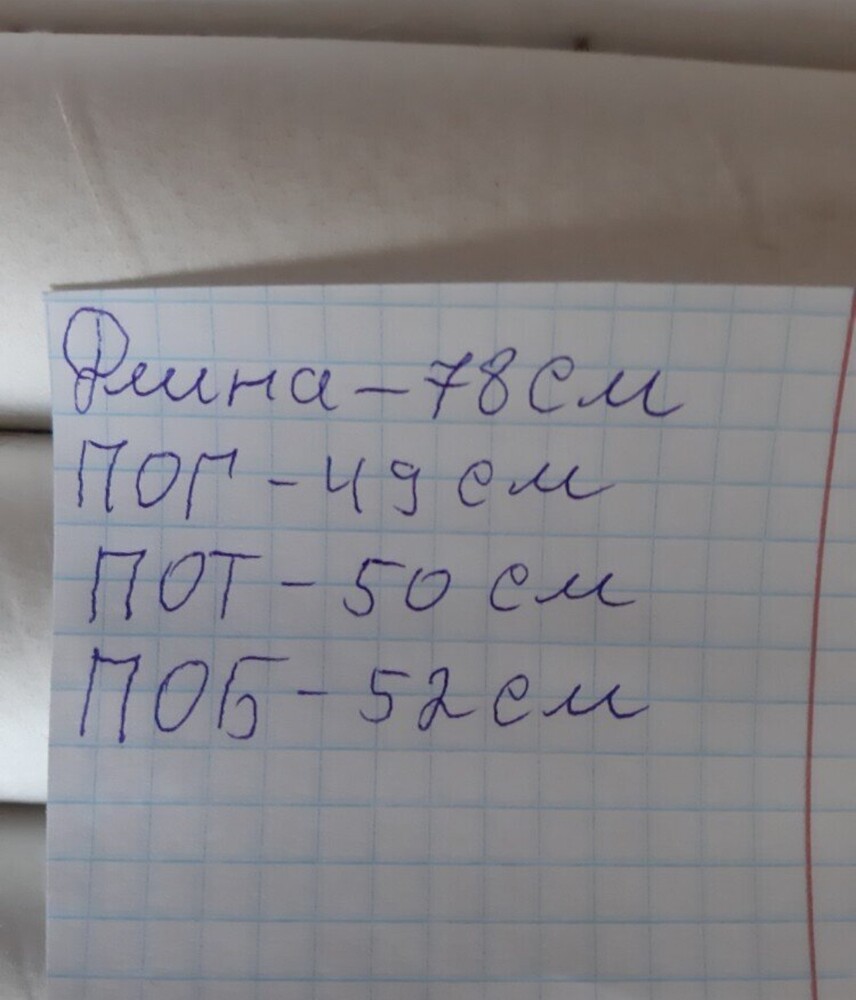 Длина - 78 см
ПОГ - 49 см
ПОТ - 50 см
ПОБ - 52 см